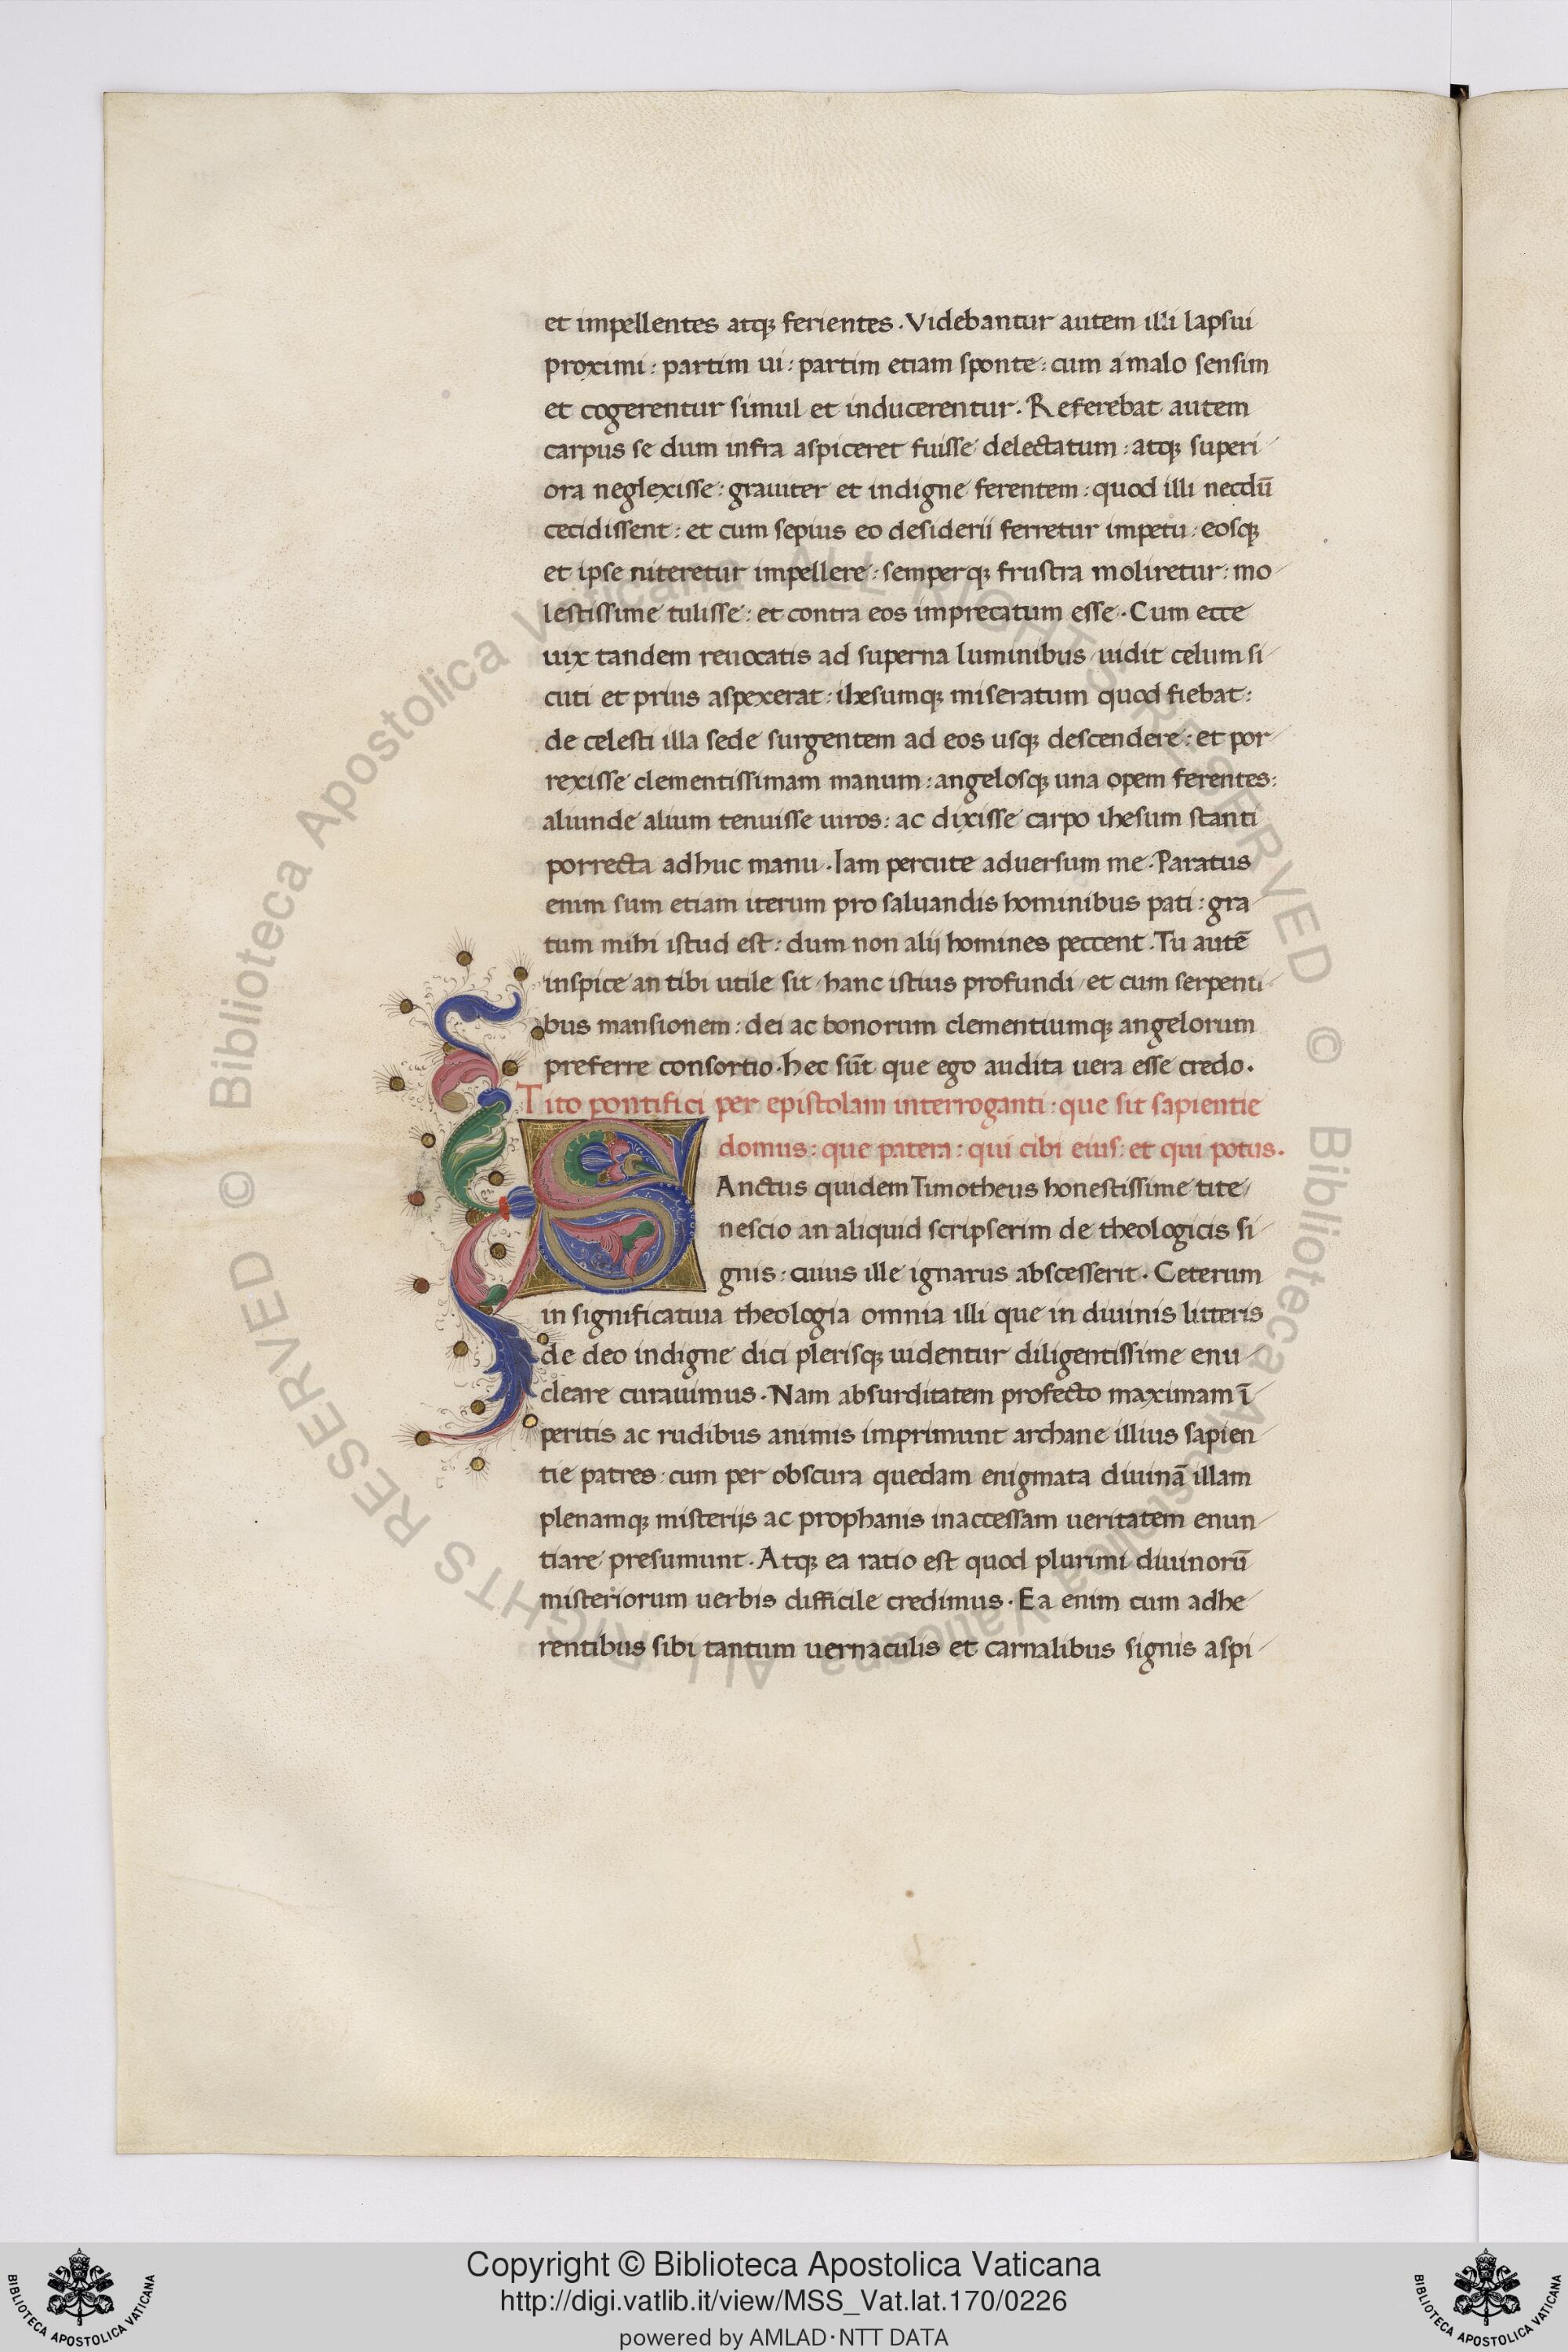 et impellentes atq; ferientes. Videbantur autem illi lapsui
proximi: partim ui: partim etiam sponte: cum a malo sensim
et cogerentur simul et inducerentur. Referebat autem
carpus se dum infra aspiceret fuisse delectatum: atq; superi
ora neglexisse: grauiter et indigne ferentem: quod illi necdū
cecidissent: et cum sepius eo desiderii ferretur impetu: eosq;
et ipse niteretur impellere: semperq; frustra moliretur: mo
lestissime tulisse: et contra eos imprecatum esse. Cum ecce
uix tandem reuocatis ad superna luminibus uidit celum si
cuti et prius aspexerat: ihesumq; miseratum quod fiebat:
de celesti illa sede surgentem ad eos usq; descendere: et por
rexisse clementissimam manum: angelosq; una opem ferentes:
aliunde alium tenuisse uiros: ac dixisse carpo ihesum stanti
porrecta adhuc manu. Iam percute aduersum me. Paratus
enim sum etiam iterum pro saluandis hominibus pati: gra
tum mihi istud est: dum non alij homines peccent. Tu autē
inspice an tibi utile sit hanc istius profundi et cum serpenti
bus mansionem: dei ac bonorum clementiumq; angelorum
preferre consortio. hec sūt que ego audita uera esse credo.
Tito pontifici per epistolam interroganti: que sit sapientie
domus: que patera: qui cibi eius: et qui potus.
SAnctus quidem Timotheus honestissime tite
nescio an aliquid scripserim de theologicis si
gnis: cuius ille ignarus abscesserit. Ceterum
in significatiua theologia omnia illi que in diuinis litteris
de deo indigne dici plerisq; uidentur diligentissime enu
cleare curauimus. Nam absurditatem profecto maximam ī
peritis ac rudibus animis imprimunt archane illius sapien
tie patres: cum per obscura quedam enigmata diuinā illam
plenamq; misterijs ac prophanis inaccessam ueritatem enun
tiare presumunt. Atq; ea ratio est quod plurimi diuinorū
misteriorum uerbis difficile credimus. Ea enim cum adhe
rentibus sibi tantum uernaculis et carnalibus signis aspi
© Biblioteca Apostolica Vaticana ALL RIGHTS RESERVED
© Biblioteca Apostolica Vaticana ALL RIGHTS RESERVED
Copyright © Biblioteca Apostolica Vaticana
http://digi.vatlib.it/view/MSS_Vat.lat.170/0226
powered by AMLAD·NTT DATA
BIBLIOTECA APOSTOLICA VATICANA
BIBLIOTECA APOSTOLICA VATICANA